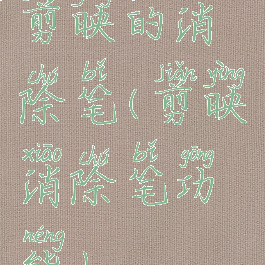 剪映的消
chú bǐ jiǎn yìng
除笔(剪映
xiāo chú bǐ gōng
消除笔功
néng
能)